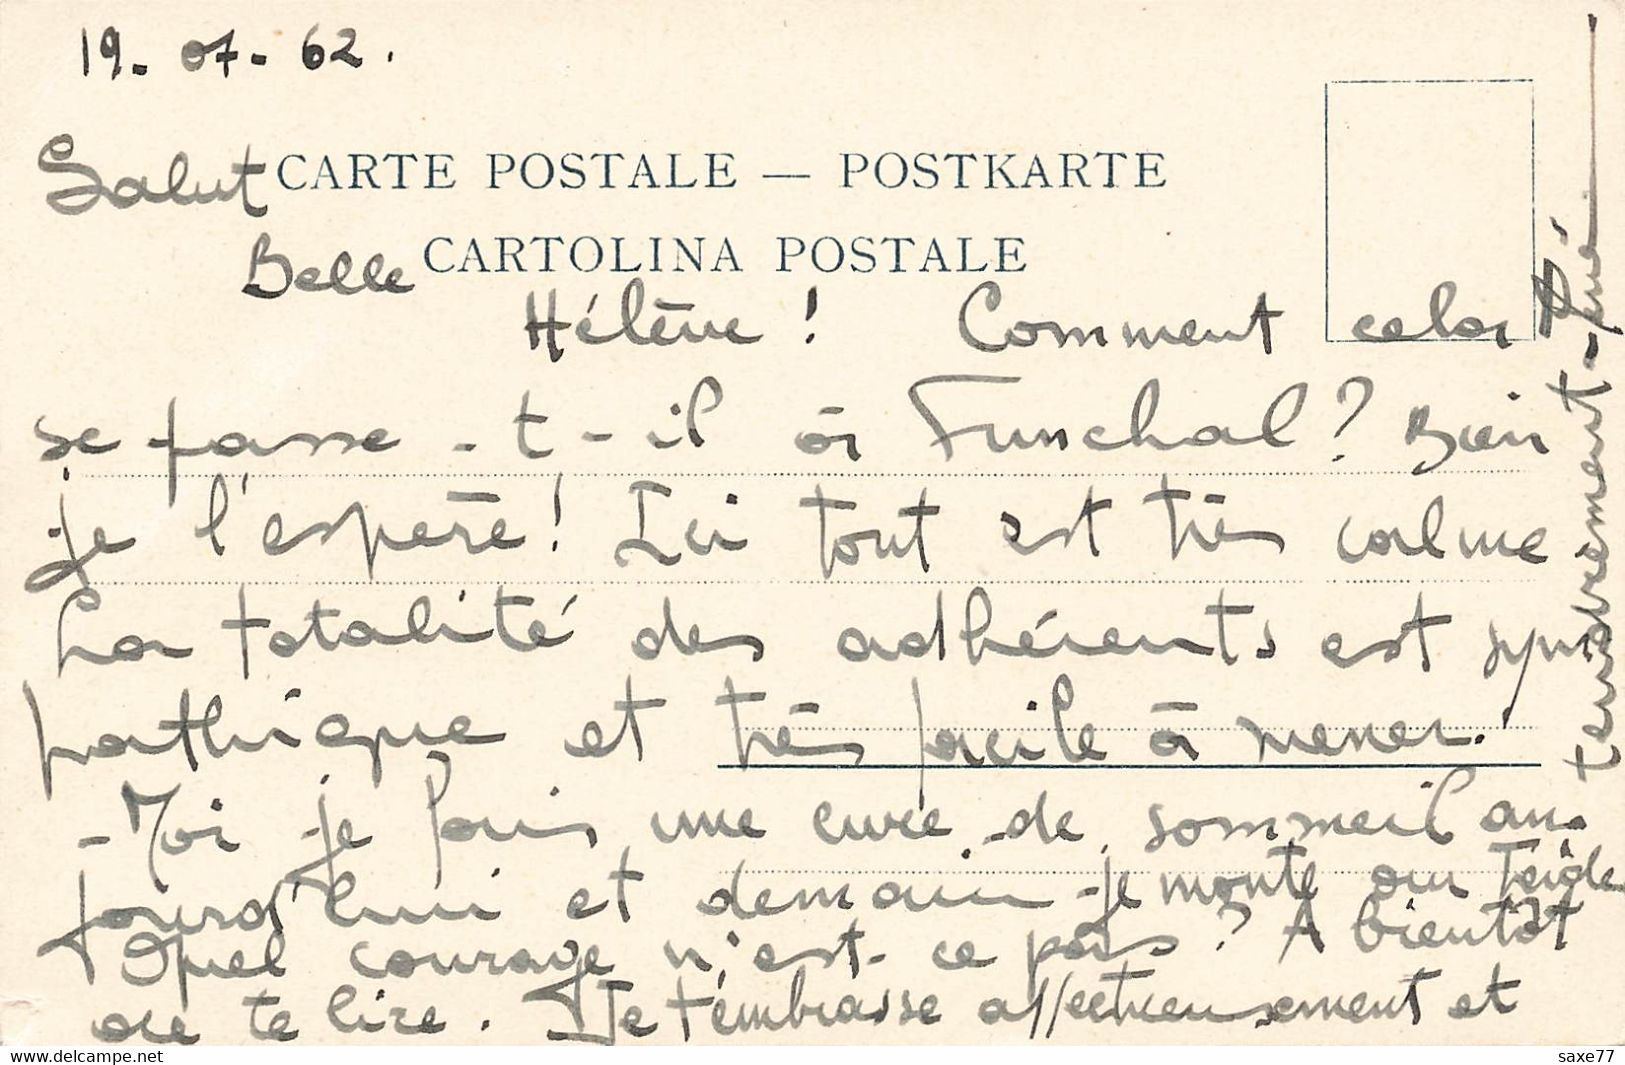 19-07-62.
Salut CARTE POSTALE — POSTKARTE
Belle CARTOLINA POSTALE
Hélène ! Comment cela
se passe-t-il à Funchal ? Bien
je l'espère ! Ici tout est très calme
La totalité des adhérents est sym
pathique et très facile à mener.
- Moi je fais une cure de sommeil au-
jourd'hui et demain je monte au Teide
Quel courage n'est-ce pas ? A bientôt
de te lire. Je t'embrasse affectueusement et
tendrement
saxe77